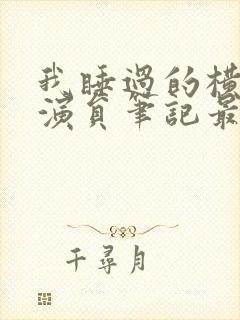 我睡過的橫
演員筆記最
千尋月